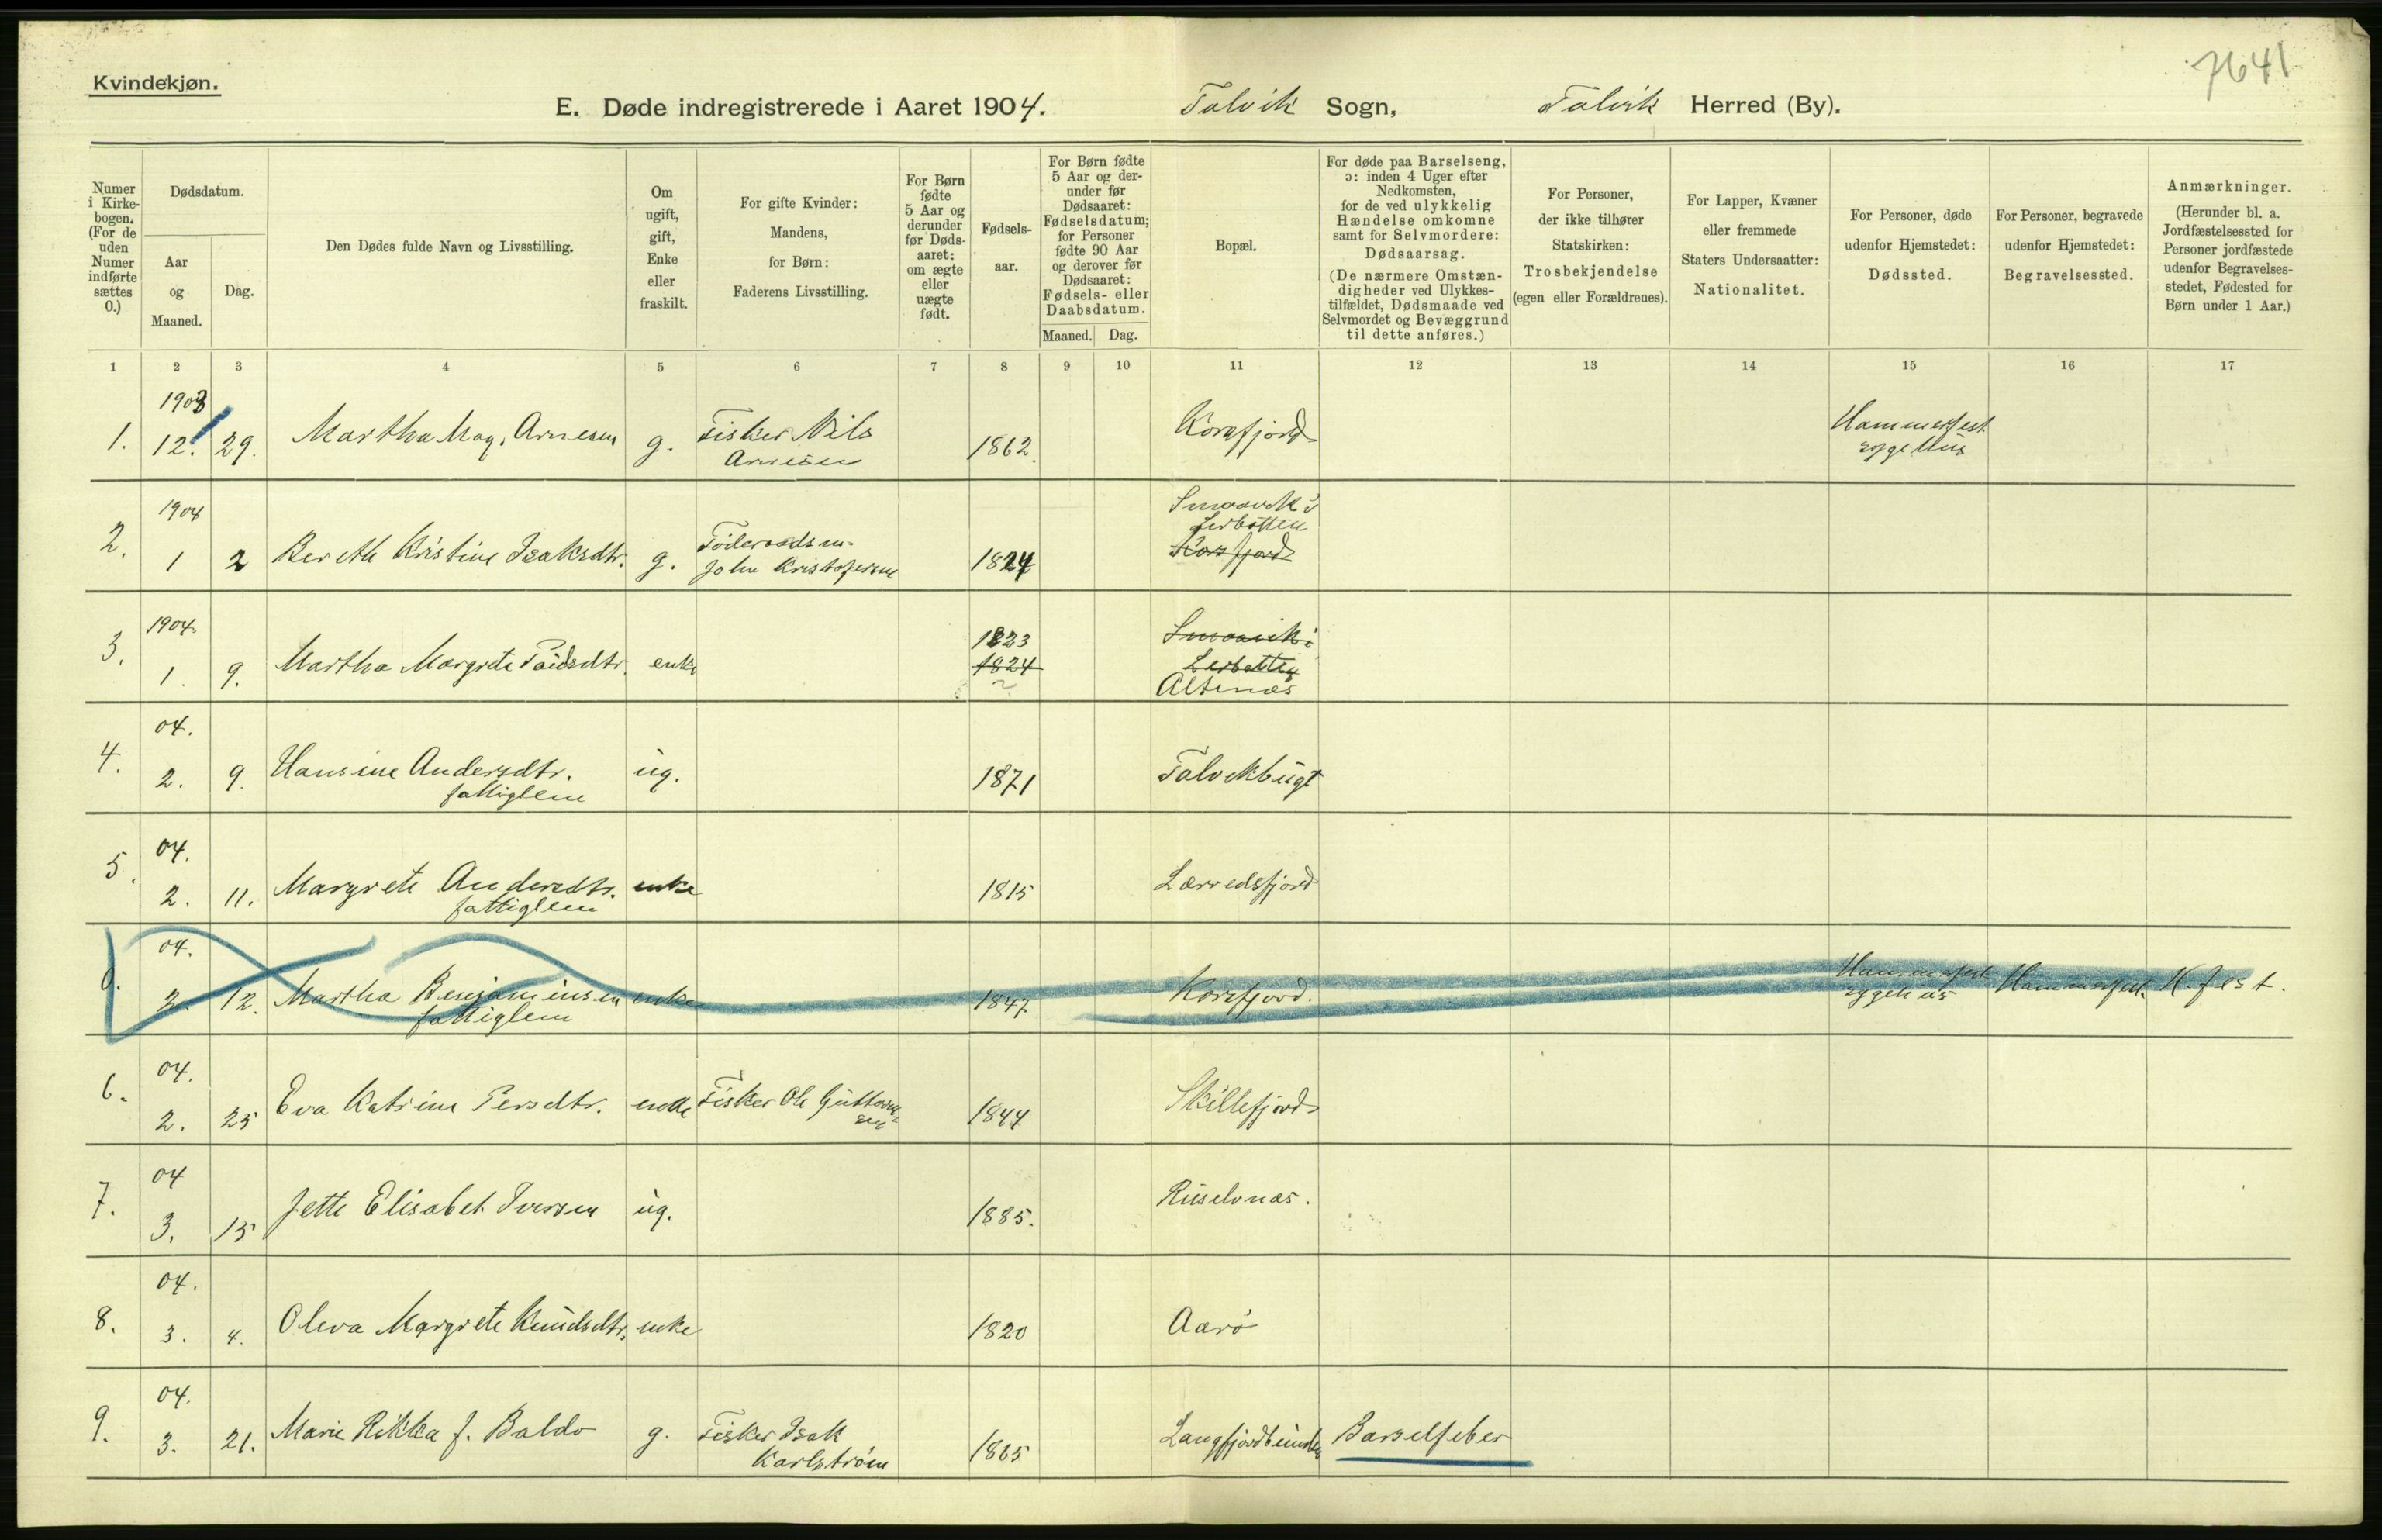 7641
Kvindekjøn.
E. Døde indregistrerede i Aaret 1904. Talvik Sogn, Talvik Herred (By).
Numer i Kirke-bogen. (For de uden Numer indførte sættes 0.)
Dødsdatum.
Aar og Maaned.
Dag.
Den Dødes fulde Navn og Livsstilling.
Om ugift, gift, Enke eller fraskilt.
For gifte Kvinder: Mandens, for Børn: Faderens Livsstilling.
For Børn fødte 5 Aar og derunder før Døds-aaret: om ægte eller uægte født.
Fødsels-aar.
For Børn fødte 5 Aar og der-under før Dødsaaret: Fødselsdatum; for Personer fødte 90 Aar og derover før Dødsaaret: Fødsels- eller Daabsdatum.
Maaned. Dag.
Bopæl.
For døde paa Barselseng, ɔ: inden 4 Uger efter Nedkomsten, for de ved ulykkelig Hændelse omkomne samt for Selvmordere: Dødsaarsag.
(De nærmere Omstæn-digheder ved Ulykkes-tilfældet, Dødsmaade ved Selvmordet og Bevæggrund til dette anføres.)
For Personer, der ikke tilhører Statskirken: Trosbekjendelse (egen eller Forældrenes).
For Lapper, Kvæner eller fremmede Staters Undersaatter: Nationalitet.
For Personer, døde udenfor Hjemstedet: Dødssted.
For Personer, begravede udenfor Hjemstedet: Begravelsessted.
Anmærkninger. (Herunder bl. a. Jordfæstelsessted for Personer jordfæstede udenfor Begravelses-stedet, Fødested for Børn under 1 Aar.)
1 2 3 4 5 6 7 8 9 10 11 12 13 14 15 16 17
1903
1. 12. 29. Martha Mag. Arnesen g. Fisker Nils Arnesen 1862. Korsfjord Hammerfest sygehus
1904
2. 1 2 Bereth Kristine Isaksdtr. g. Föderaadsm. John Kristofersen 1824 Smaavik i Lerbotten Korsfjord
1904
3. 1. 9. Martha Margrete dtr. enke 1823 1824 Smaavik i Lerbotten Altenæs
04.
4. 2. 9. Hansine Andersdtr. fattiglem ug. 1871 Talvikbugt
04.
5. 2. 11. Margrete Andersdtr. fattiglem enke 1815 Lærredsfjord
04.
6. 2. 12. Martha Benjaminsen fattiglem enke 1847 Korsfjord. Hammerfest sygehus Hammerfest. H.fest.
04.
6. 2. 25 Eva Katrine Persdtr. enke Fisker Ole Guttormsen 1844 Skillefjord
04
7. 3. 15 Jette Elisabet Iversen ug. 1885. Riiselvnæs.
04.
8. 3. 4. Oleva Margrete Knudsdtr. enke 1820 Aarö
04.
9. 3. 21. Marie Rikka f. Baldo g. Fisker Isak Karlström 1865 Langfjordbunden Barselfeber